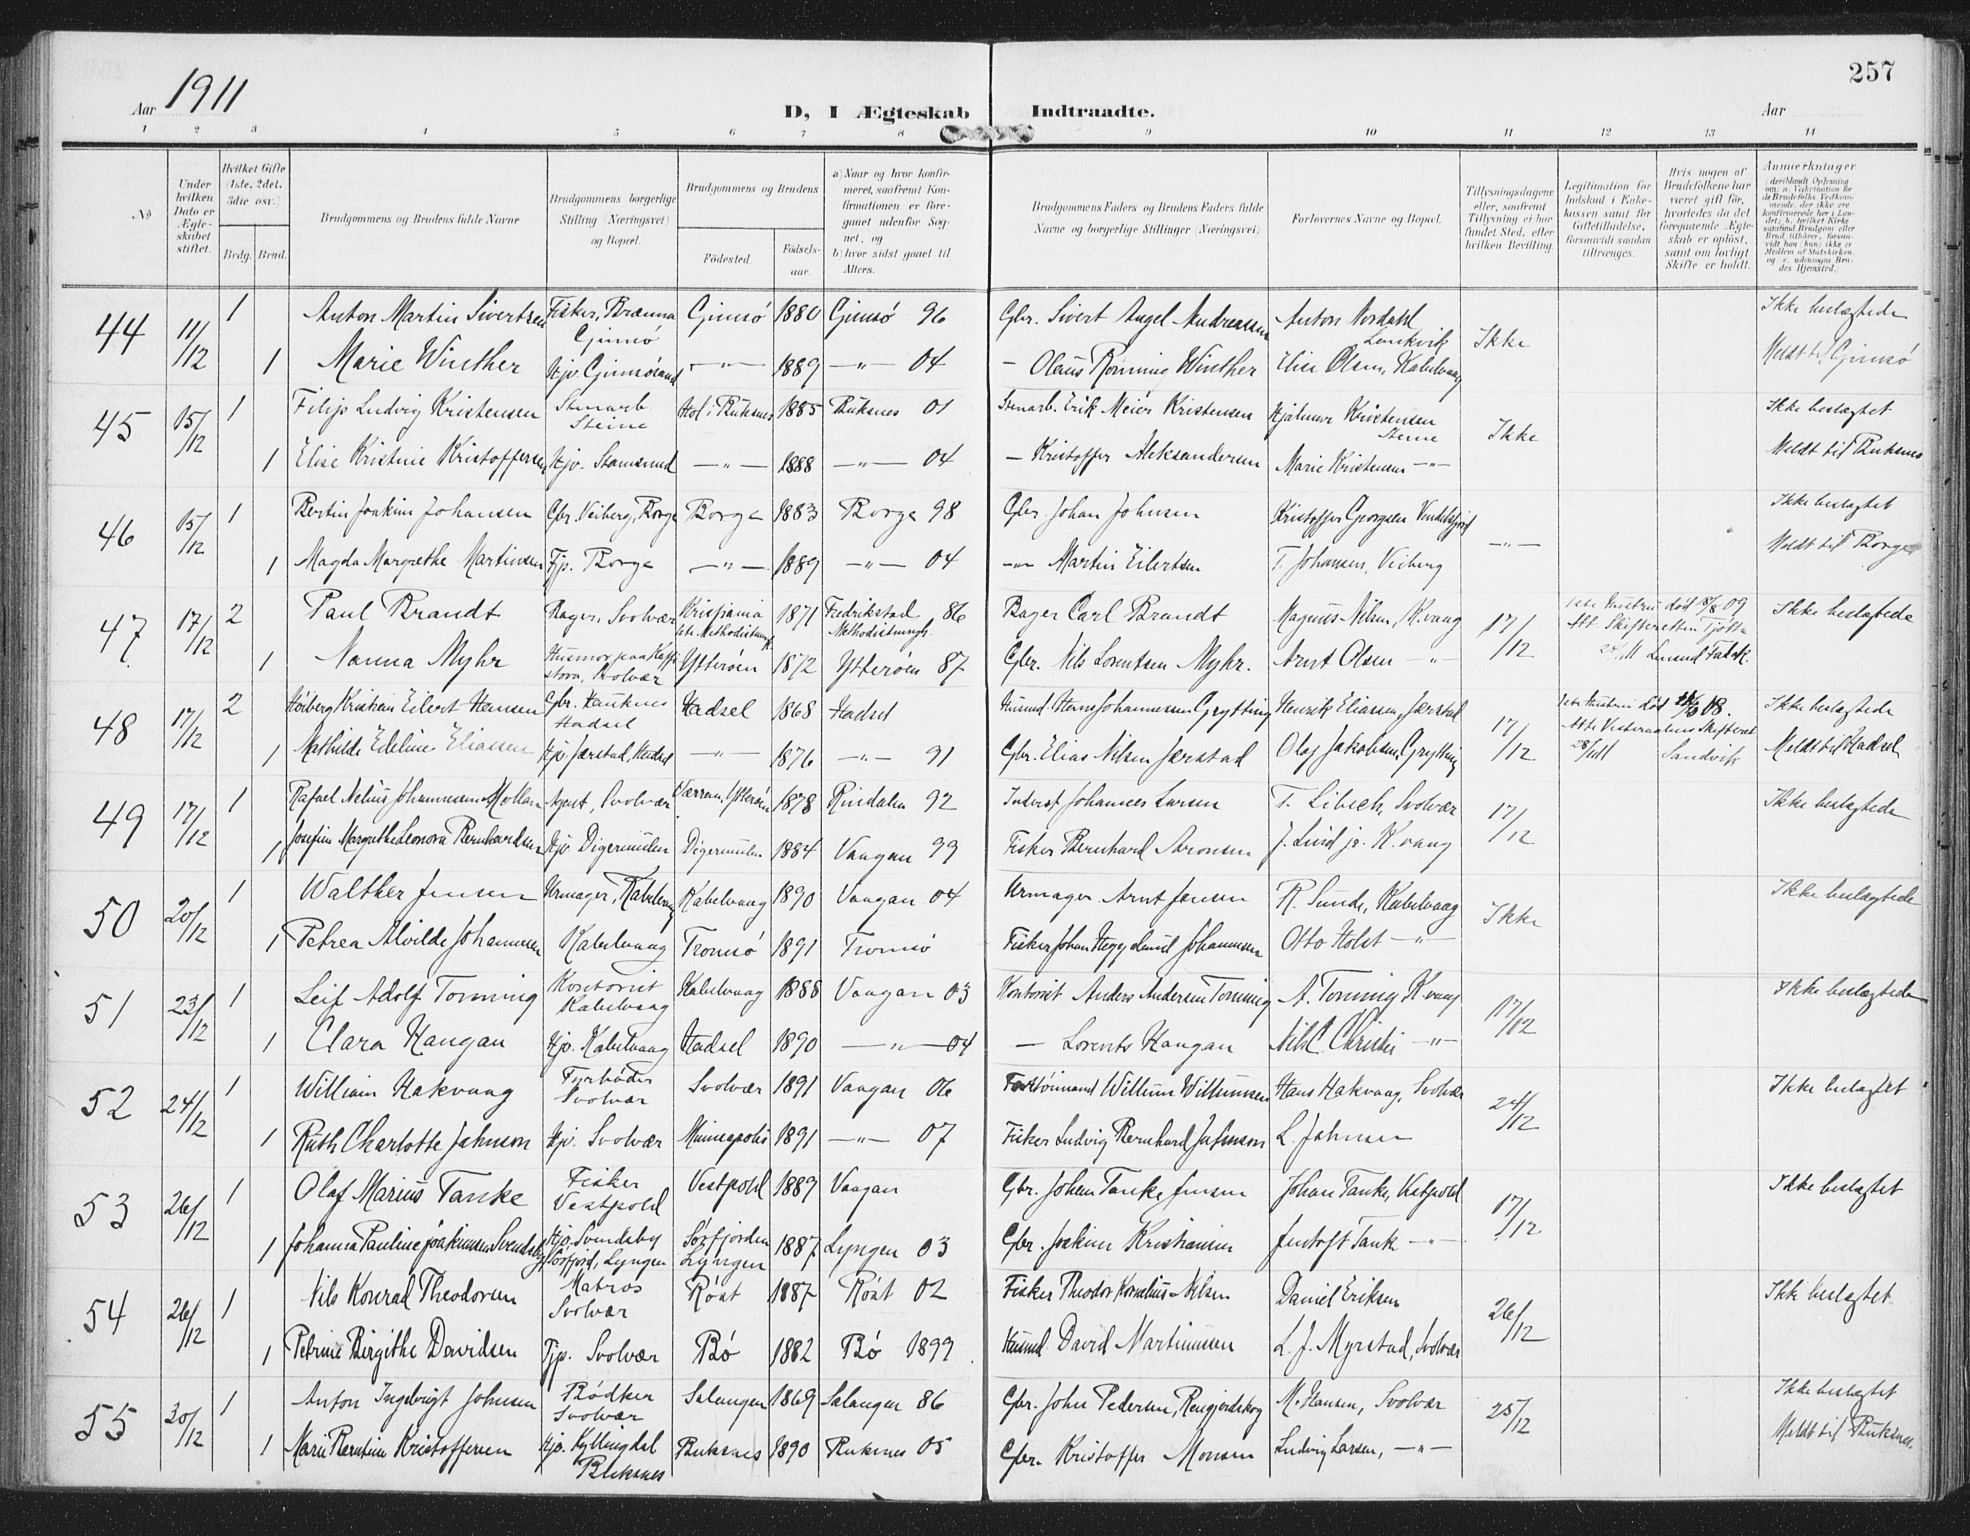 257
Aar 1911
D, I Ægteskab Indtraadte.
Aar
1 2 3 4 5 6 7 8 9 10 11 12 13 14
№
Under hvilken Dato er Ægteskabet stiftet.
Hvilket Gifte (1ste, 2det, 3die osv.)
Brdg. Brud.
Brudgommens og Brudens fulde Navne
Brudgommens borgerlige Stilling (Næringsvei) og Bopæl.
Brudgommens og Brudens
Fødested.
Fødselsaar.
a) Naar og hvor konfirmeret, saafremt Konfirmationen er foregaaet udenfor Sognet, og
b) hvor sidst gaaet til Alters.
Brudgommens Faders og Brudens Faders fulde Navne og borgerlige Stillinger (Næringsvei)
Forlovernes Navne og Bopæl.
Tillysningsdagene eller, saafremt Tillysning ei har fundet Sted, efter hvilken Bevilling.
Legitimation for Indskud i Enkekassen samt for Giftetilladelse, forsaavidt saadan tiltrænges.
Hvis nogen af Brudefolkene har været gift før, hvorledes da det foregaaende Ægteskab er opløst, samt om lovligt Skifte er holdt.
Anmærkninger
44 11/12 1 Anton Martin Sivertsen Fisker, Brenna Gimsø Gimsø 1880 Gimsø 96 Gbr. Sivert Angel Andreassen Anton Nordahl Ikke Ikke beslægtede
1 Marie Winther Hjv. Gimsøsand —"— 1889 —"— 04 — Olaus Rønning Winther Elise Olsen, Kabelvaag Meldt til Gimsø
45 15/12 1 Filip Ludvig Kristensen Stenarb. Steine Hol i Buksnes 1885 Buksnes 01 Stenarb. Erik Meier Kristensen Hjalmar Kristensen Steine Ikke Ikke beslægtet
1 Elise Kristine Kristoffersen Hjv. Stamsund —"— 1888 —"— 04 — Kristoffer Aleksandersen Marie Kristensen —"— Meldt til Buksnes
46 15/12 1 Bertin Joakim Johansen Gbr. Veiberg, Borge Borge 1883 Borge 98 Gbr. Johan Johnsen Kristoffer Georgsen —"— Ikke beslægtet
1 Magda Margrethe Martinsen Tjp. Borge —"— 1889 —"— 04 —"— Martin Eilertsen T. Johansen, Veiberg Meldt til Borge
47 17/12 2 Paul Brandt Bager, Svolvær Kristiania 1871 Fredrikstad 86 Bager Carl Brandt Magnus Nilsen, K.vaag 17/12 1ste Hustru død 18/8 09 Att. Skifteretten Tjøtta Ikke beslægtede
1 Nanna Myhr Svolvær Ytterøen 1872 Ytterøen 87 Gbr. Nils Lorentsen Myhr. Arnt Olsen —"—
48 17/12 2 Kristian Eilert Hansen Gbr. Hauknes Hadsel Hadsel 1868 Hadsel Husmd. Hans Johannessen Grytting Henrik Eliassen, Jærstad 17/12 1ste Hustru død 08. Att. Vesteraalens Skifteret Sandvik Ikke beslægtede
1 Mathilde Edeline Eliassen Hjv. Jærstad, Hadsel —"— 1876 —"— 91 Gbr. Elias Nilsen Jærstad Olaf Jakobsen, Grytting Meldt til Hadsel
49 17/12 1 Rafael Nelius Johannessen Mollan Agent, Svolvær Værran, Ytterøen 1878 Rindalen 92 Inderst Johannes Larsen T. Libech, Svolvær 17/12 Ikke beslægtede
1 Josefine Margrethe Leonora Bernhardsen Hjv. Digermulen Digermulen 1884 Vaagan 99 Fisker Bernhard Aronsen J. Lind jr. K.vaag
50 20/12 1 Walther Jensen Urmager, Kabelvaag Kabelvaag 1890 Vaagan 04 Urmager Arnt Jensen R. Sunde, Kabelvaag Ikke Ikke beslægtede
1 Petrea Alvilde Johannesen Kabelvaag Tromsø 1891 Tromsø Fisker Johan Heggelund Johannesen Otto Holst —"—
51 23/12 1 Leif Adolf Torning Kontorist Kabelvaag Kabelvaag 1888 Vaagan 03 Kontorist Anders Andersen Torning A. Torning K.vaag 17/12 Ikke beslægtede
1 Clara Haugan Hjv. Kabelvaag Hadsel 1890 —"— 04 — Lorents Haugan Nils C. Christie —"—
52 24/12 1 William Hakvaag Fyrbøder Svolvær Svolvær 1891 Vaagan 06 Willum Willumsen Hans Hakvaag, Svolvær 24/12 Ikke beslægtet
1 Ruth Charlotte Johnson Hjv. Svolvær Minneapolis 1891 —"— 07 Fisker Ludvig Bernhard Johnson L. Johnsen
53 26/12 1 Olaf Marius Tanke Fisker Vestpold Vestpold 1889 Vaagan Gbr. Johan Tanke Jensen Johan Tanke, Vestpold 17/12 Ikke beslægtet
1 Johanna Pauline Joakimsen Svendsby Hjv. Svendsby Sørfjord, Lyngen Sørfjorden Lyngen 1887 Lyngen 03 Gbr. Joakim Kristiansen Jentoft Tank —"—
54 26/12 1 Nils Konrad Theodorsen Matros Svolvær Røst 1887 Røst 02 Fisker Theodor Kornelius Nilsen Daniel Eriksen 26/12 Ikke beslægtet
1 Petrine Birgithe Davidsen Tjp. Svolvær Bø 1882 Bø 1899 Husmd. David Martinussen L. J. Myrstad, Svolvær
55 30/12 1 Anton Ingebrigt Johnsen Bødker Svolvær Salangen 1869 Salangen 86 Gbr. John Pedersen, M. Hansen, Svolvær 25/12 Ikke beslægtet
1 Marie Berntine Kristoffersen Hjv. Kyllingdal Buksnes Buksnes 1890 Buksnes 05 Gbr. Kristoffer Monsen Ludvig Larsen, —"— Meldt til Buksnes.